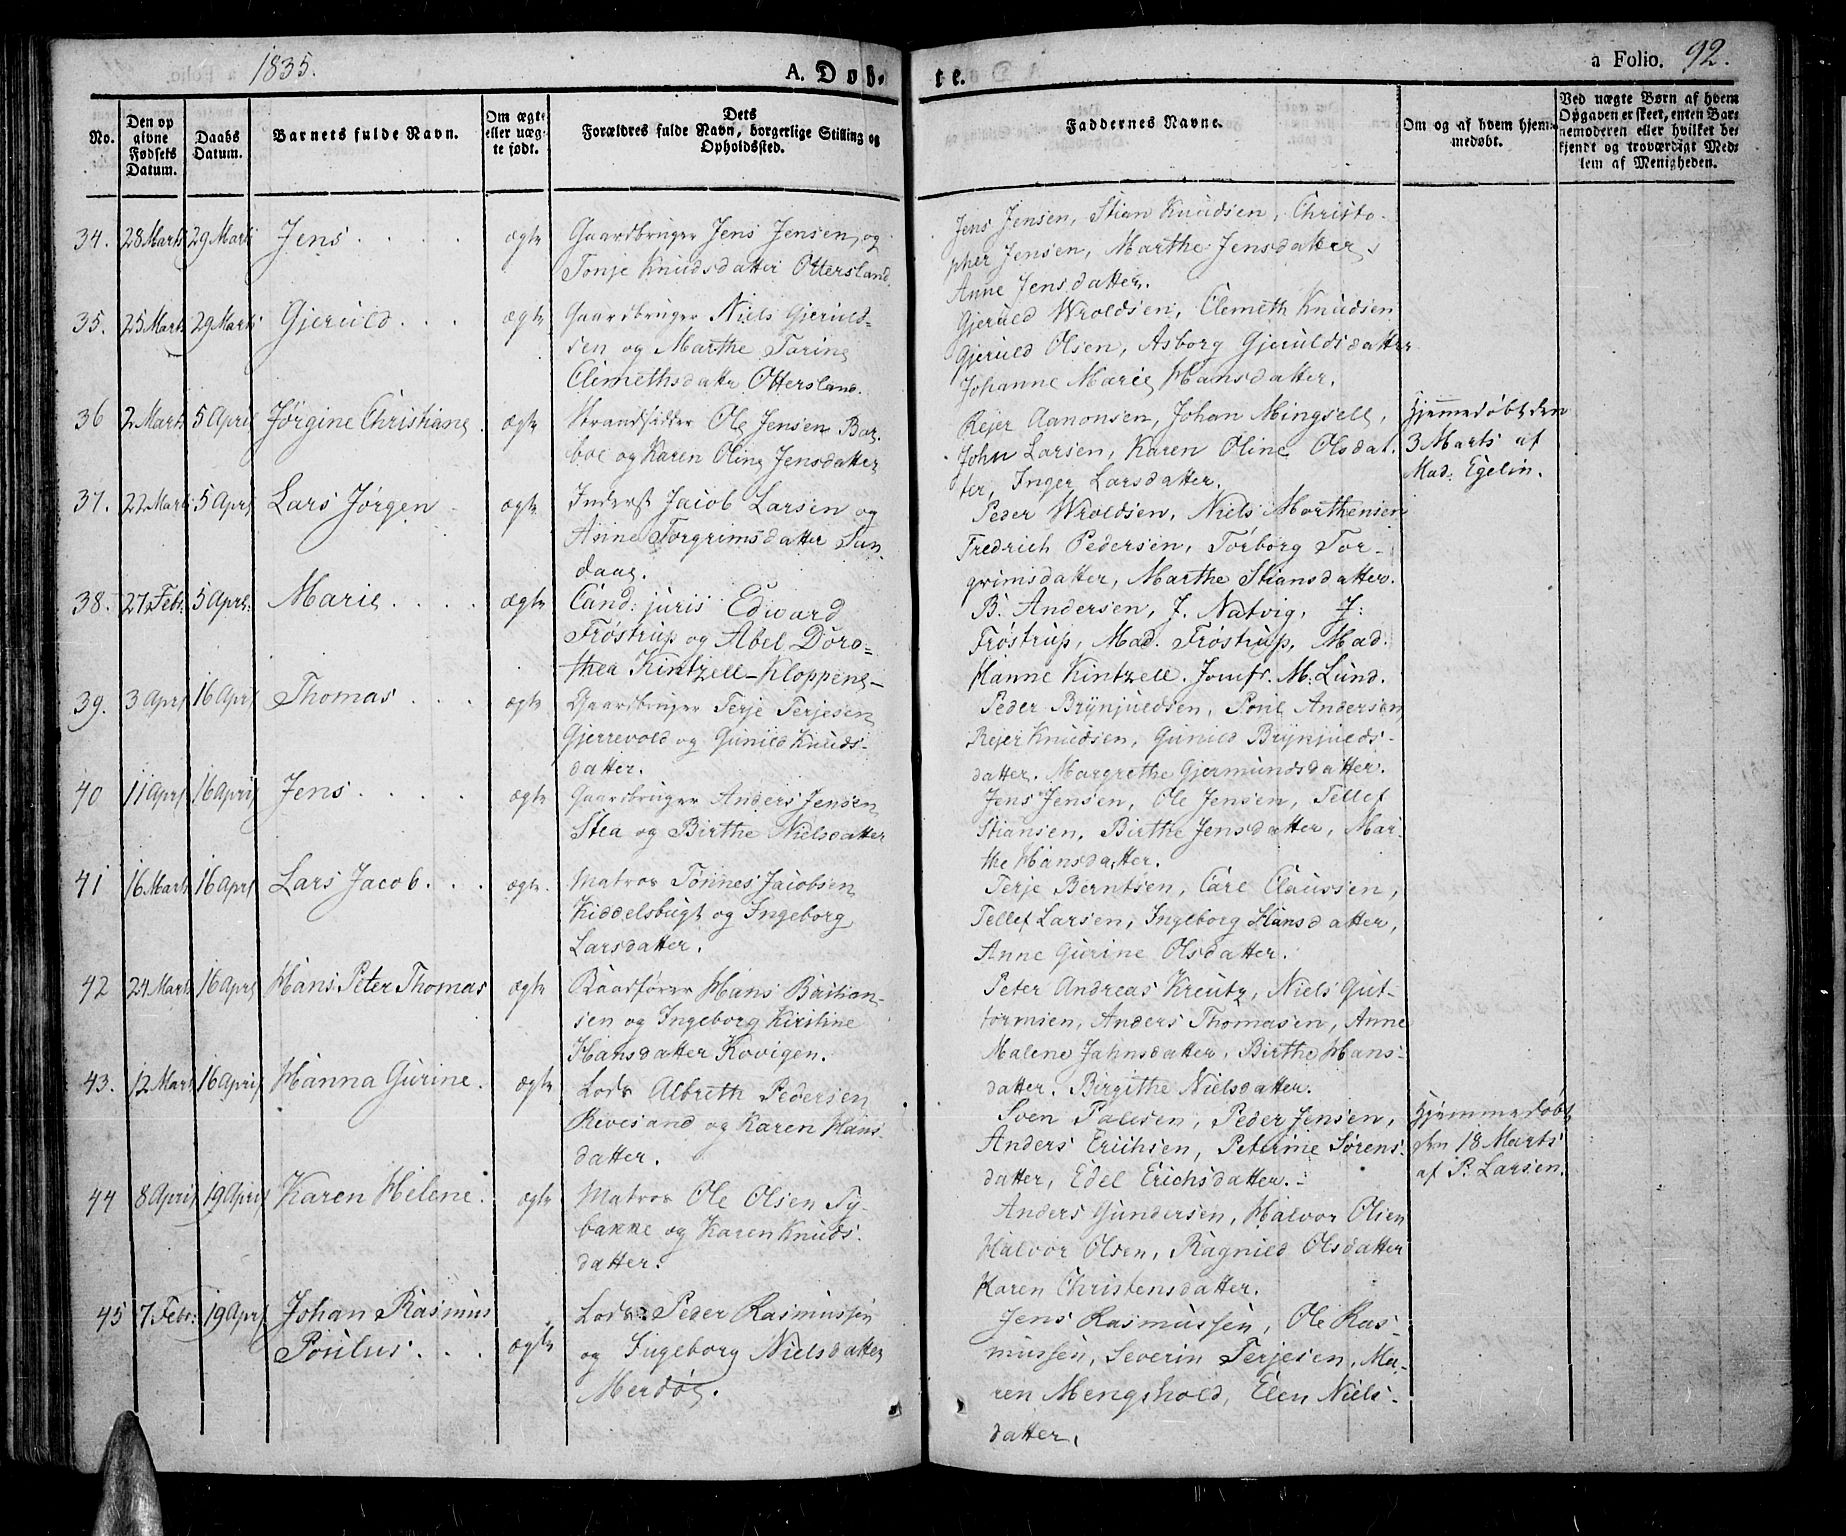 1835.
A. Døb-
te.
a Folio. 92.
No.
Den op
givne
Fødsels
Datum.
Daabs
Datum.
Barnets fulde Navn.
Om ægte
eller uæg-
te født.
Dets
Forældres fulde Navn, borgerlige Stilling og
Opholdssted.
Faddernes Navne.
Om og af hvem hjem-
medøbt.
Ved uægte Børn af hvem
Opgaven er skeet, enten Bar-
nemoderen eller hvilket be-
kjendt og troværdigt Med-
lem af Menigheden.
34. 28 Marts 29 Marts Jens ægte
Gaardbruger Jens Jensen og
Tonje Knudsdatter Ottersland.
Jens Jensen, Stian Knudsen, Christo-
pher Jensen, Marthe Jensdatter,
Anne Jensdatter.
35. 25 Marts 29 Marts Gjeruld ægte
Gaardbruger Niels Gjeruld-
sen og Marthe Torine
Clemethsdattr Ottersland.
Gjeruld Wroldsen, Clemeth Knudsen
Gjeruld Olsen, Asborg Gjeruldsdatter
Johanne Marie Hansdatter.
36 2 Marts 5 April Jørgine Christiane ægte
Strandsidder Ole Jensen Bar-
boe og Karen Oline Jensdatter
Rejer Aanonsen, Johan Mingsell,
John Larsen, Karen Oline Olsdat-
ter, Inger Larsdatter.
Hjemmedøbt den
3 Marts af
Mad: Egelin.
37. 22 Marts 5 April Lars Jørgen ægte
Inderst Jacob Larsen og
Anne Torgrimsdatter Sun-
daae.
Peder Wroldsen, Niels Morthensen
Fredrich Pedersen, Torborg Tor-
grimsdatter, Marthe Stiansdatter.
38. 27 Febr. 5 April. Marie ægte
Cand: juris Edward
Frøstrup og Abel Doro-
thea Kintzell - Kloppene -
B. Andersen, J. Natvig, J:
Frøstrup, Mad. Frøstrup, Mad.
Hanne Kintzell. Jomfr. M. Lund.
39. 3 April 16 April Thomas ægte
Gaardbruger Terje Terjesen
Gjerrevold og Gunild Knuds-
datter.
Peder Brynjuldsen, Poul Andersen
Rejer Knudsen, Gunild Brynjulds-
datter. Margrethe Gjermundsdatter.
40 11 April 16 April Jens ægte
Gaardbruger Anders Jensen
Stea og Birthe Nielsdatter
Jens Jensen, Ole Jensen, Tellef
Stiansen, Birthe Jensdatter, Mar-
the Hansdatter.
41 16 Marts 16 April Lars Jacob. ægte.
Matros Tønnes Jacobsen
Kiddelsbugt og Ingeborg
Larsdatter.
Terje Berntsen, Carl Claussen,
Tellef Larsen, Ingeborg Hansdatter,
Anne Gurine Olsdatter.
42 24 Marts 16 April Hans Peter Thomas ægte
Baadfører Hans Bastian-
sen og Ingeborg Kirstine
Hansdatter Kovigen.
Peter Andreas Kreutz, Niels Gut-
tormsen, Anders Thomasen, Anne
Malene Jahnsdatter, Birthe Hans-
datter. Birgithe Nielsdatter.
43. 12 Marts 16 April Hanna Gurine. ægte
Lods Albreth Pedersen
Revesand og Karen Hans-
datter.
Sven Palesen, Peder Jensen,
Anders Erichsen, Peterine Sørens-
datter, Edel Erichsdatter.
Hjemmedøbt
den 18 Marts
af P. Larsen.
44 8 April 19 April Karen Helene. ægte
Matros Ole Olsen Ty-
bakke og Karen Knuds-
datter.
Anders Gundersen, Halvor Olsen
Halvor Olsen, Ragnild Olsdatter
Karen Christensdatter.
45 7 Febr: 19 April Johan Rasmus
Poulus ægte
Lods: Peder Rasmussen
og Ingeborg Nielsdatter
Merdøe.
Jens Rasmussen, Ole Ras-
mussen, Severin Terjesen, Ma-
ren Mengshold, Elen Niels-
datter.